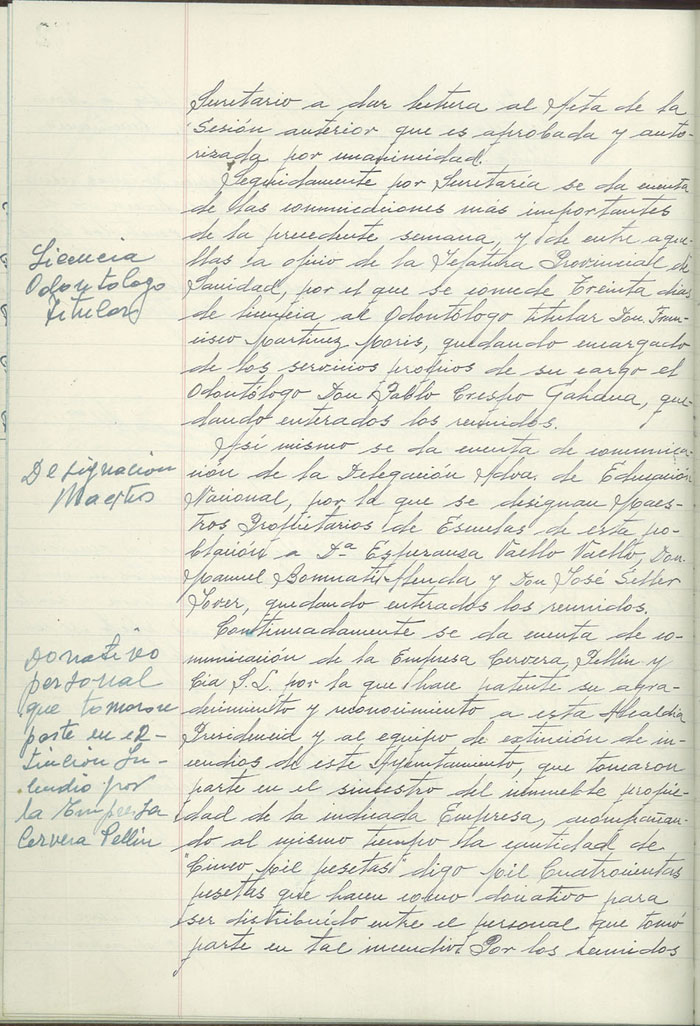 Secretario a dar lectura al Acta de la
Sesión anterior que es aprobada y auto-
rizada por unanimidad.
Seguidamente por Secretaría se da cuenta
de las comunicaciones más importantes
de la precedente semana, y de entre aque-
llas la oficio de la Jefatura Provincial de
Sanidad, por el que se concede treinta dias
de licencia al Odontólogo titular Don Fran-
cisco Martinez Moris, quedando encargado
de los servicios propios de su cargo el
Odontólogo Don Pablo Crespo Gahana, que-
dando enterados los reunidos.
Así mismo se da cuenta de comunica-
ción de la Delegación Adva. de Educación
Nacional, por la que se designan Maes-
tros Propietarios de Escuelas de esta po-
blación a Dª Esperanza Vaello Vaello, Don
Manuel y Don José Seller
Jover, quedando enterados los reunidos.
Continuadamente se da cuenta de co-
municación de la Empresa Cervera, Pellín y
Cia S.L. por la que hace patente su agra-
decimiento y reconocimiento a esta Alcaldia
Presidencia y al equipo de extinción de in-
cendios de este Ayuntamiento, que tomaron
parte en el siniestro del inmueble propie-
dad de la indicada Empresa, acompañan-
do al mismo tiempo la cantidad de
"Cinco Mil pesetas" digo Mil Cuatrocientas
pesetas que hacen como donativo para
ser distribuído entre el personal que tomó
parte en tal incendio. Por los reunidos
Licencia
Odontólogo
Titular
Designación
Maestros
Donativo
personal
que tomaron
parte en ex-
tinción In-
cendio por
la Empresa
Cervera Pellín